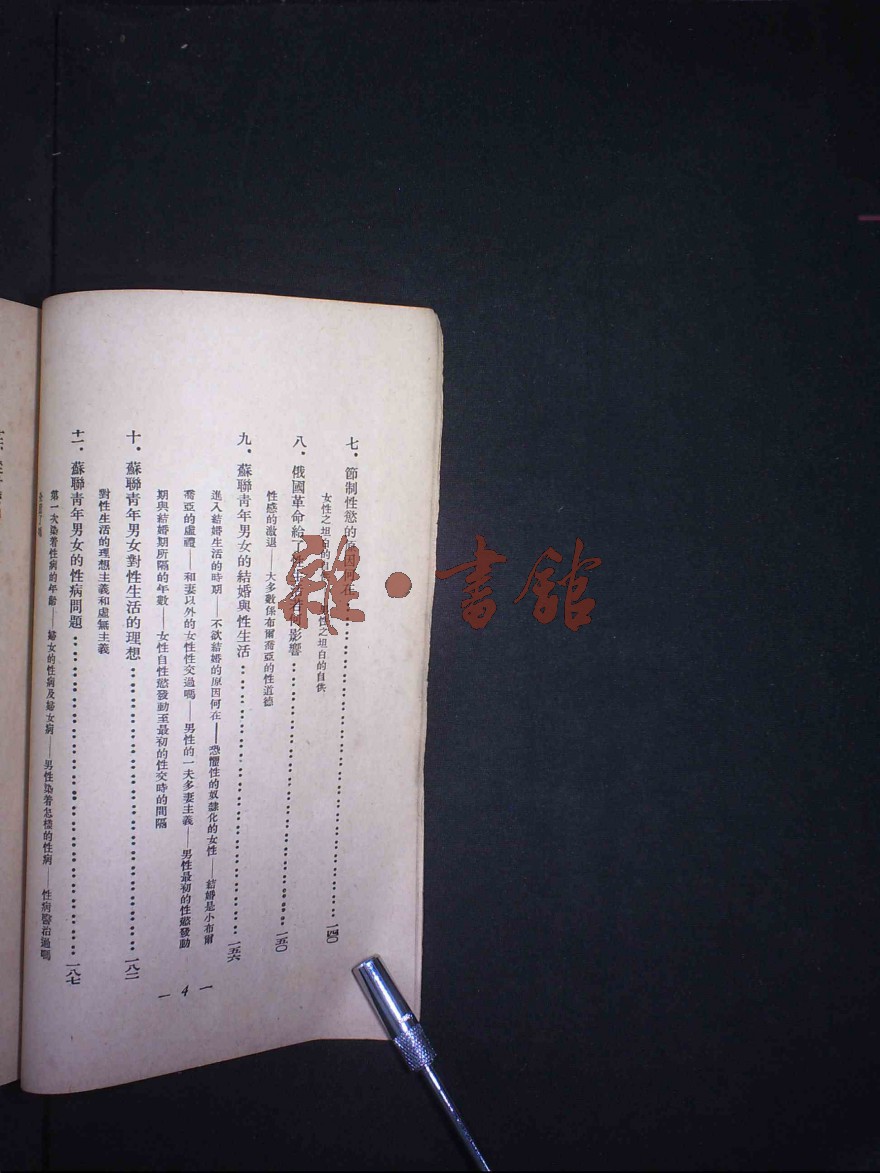 七．節制性慾的原因何在……一四〇
女性之坦白的自供——男性之坦白的自供
八．俄國革命給了性生活若何影響……一五〇
性感的激退——大多數係布爾喬亞的性道德
九．蘇聯青年男女的結婚與性生活……一五六
進入結婚生活的時期——不欲結婚的原因何在——恐懼性的奴隸化的女性——結婚是小布爾
喬亞的虛禮——和妻以外的女性性交過嗎——男性的一夫多妻主義——男性最初的性慾發動
期與結婚期所隔的年數——女性自性慾發動至最初的性交時的間隔
十．蘇聯青年男女對性生活的理想……一八二
對性生活的理想主義和虛無主義
十一．蘇聯青年男女的性病問題……一八七
第一次染着性病的年齡——婦女的性病及婦女病——男性染着怎樣的性病——性病醫治過嗎
— 4 —
雜·書館